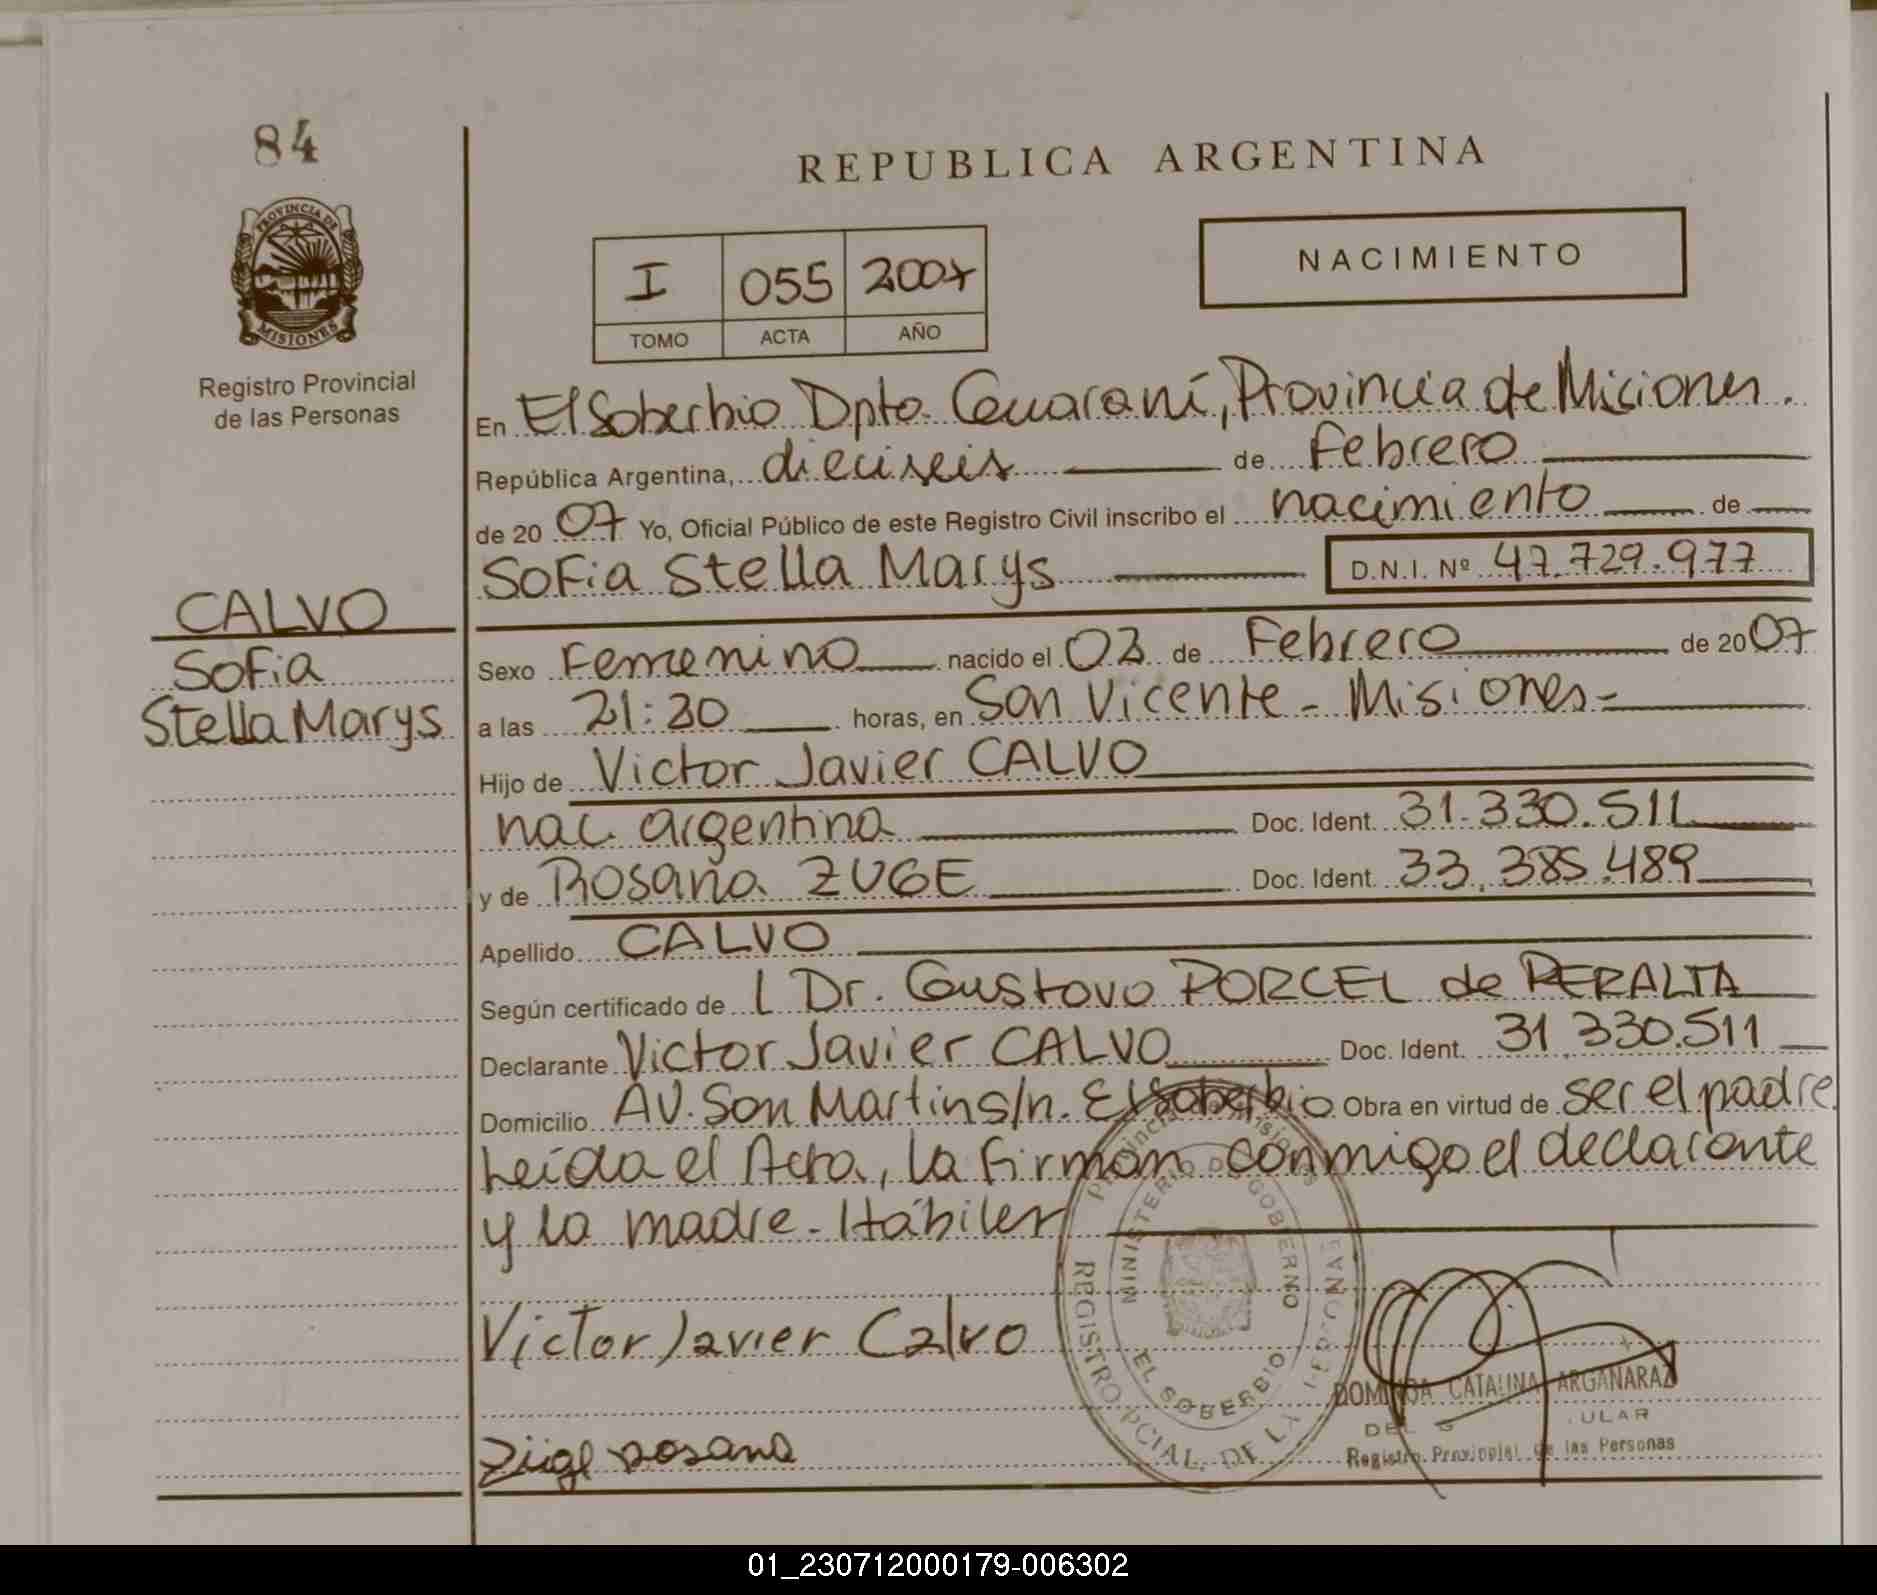 84
REPUBLICA ARGENTINA
PROVINCIA DE
MISIONES
Registro Provincial
de las Personas
I 055 2007
TOMO ACTA AÑO
NACIMIENTO
En El Soberbio Dpto. Guaraní, Provincia de Misiones.
República Argentina, dieciseis de Febrero
de 2007 Yo, Oficial Público de este Registro Civil inscribo el nacimiento de
Sofia Stella Marys D.N.I. Nº 47.729.977
CALVO
Sofia
Stella Marys
Sexo Femenino nacido el de Febrero de 2007
a las horas, en San Vicente - Misiones=
Hijo de Victor Javier CALVO
nac. argentina Doc. Ident. 31.330.511
y de Rosana ZUGE Doc. Ident. 33.385.489
Apellido CALVO
Según certificado de l Dr. Gustavo PORCEL de PERALTA
Declarante Victor Javier CALVO Doc. Ident. 31.330.511
Domicilio AV. San Martin s/n. El Soberbio Obra en virtud de ser el padre.
Leída el Acta, la firman conmigo el declarante
y la madre - Hábiles
Victor Javier Calvo
Züge Rosana
Provincia de Misiones
MINISTERIO DE GOBIERNO
EL SOBERBIO
REGISTRO PCIAL. DE LA
CATALINA ARGAÑARAZ
Registro Provincial de las Personas
01_230712000179-006302